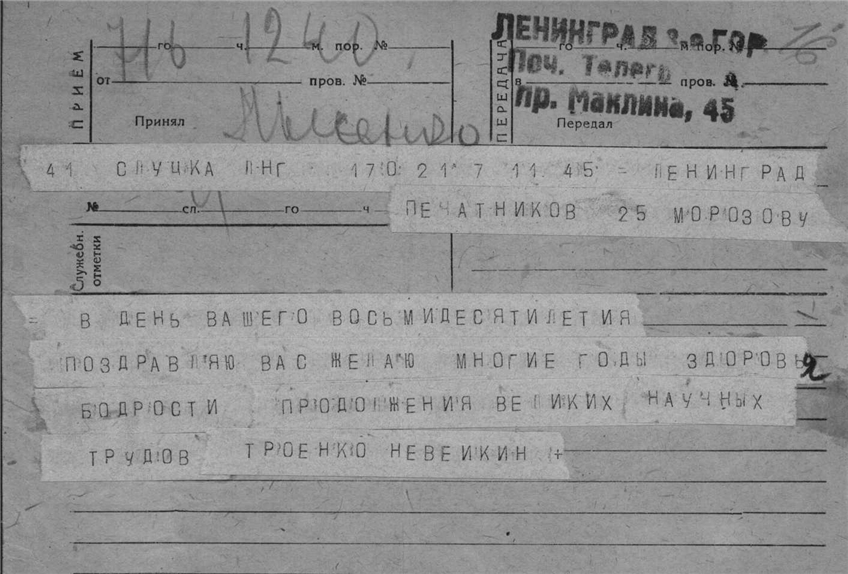 7/6 1240
ЛЕНИНГРАД 3-е ГОР
Поч. Телегр
пр. Маклина, 45
ПРИЁМ
го ч. м. пор. №
от пров. №
Принял
ПЕРЕДАЧА
го ч. м пор. №
в пров. №
Передал
41 СЛУЦКА ЛНГ 170 21 7 11.45 - ЛЕНИНГРАД
№ сл. го ч
ПЕЧАТНИКОВ 25 МОРОЗОВУ
Служебн. отметки
= В ДЕНЬ ВАШЕГО ВОСЬМИДЕСЯТИЛЕТИЯ
ПОЗДРАВЛЯЮ ВАС ЖЕЛАЮ МНОГИЕ ГОДЫ ЗДОРОВЬЯ
БОДРОСТИ ПРОДОЛЖЕНИЯ ВЕЛИКИХ НАУЧНЫХ
ТРУДОВ ТРОЕНКО НЕВЕИКИН +